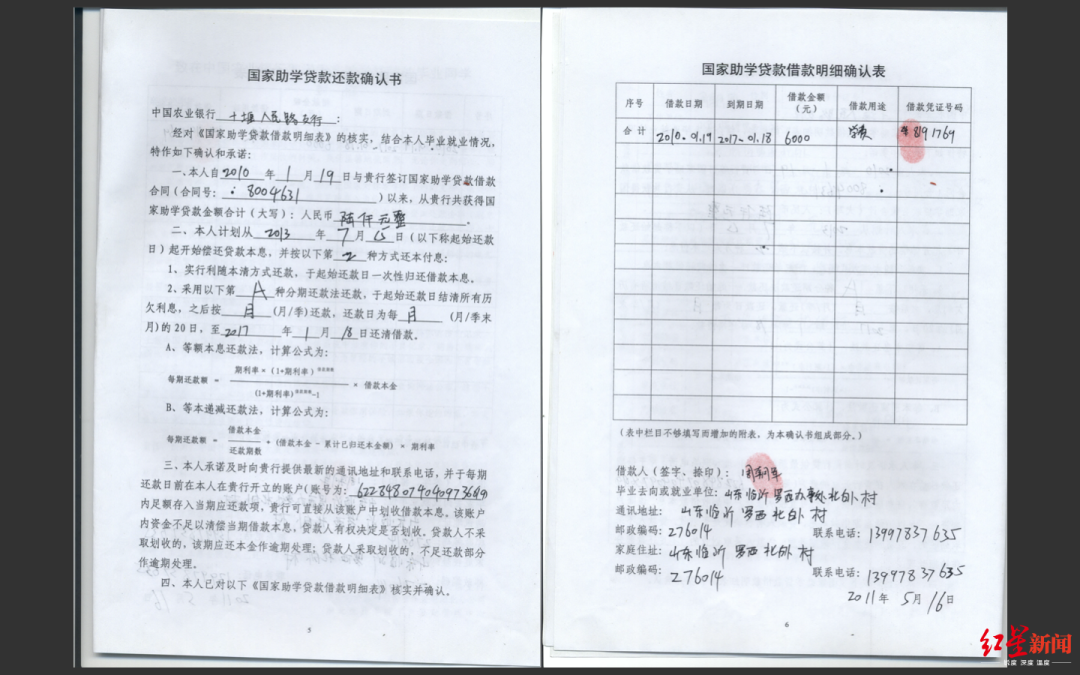 国家助学贷款还款确认书
中国农业银行 十堰人民路支行 :
经对《国家助学贷款借款明细表》的核实，结合本人毕业就业情况，
特作如下确认和承诺：
一、本人自2010年1月19日与贵行签订国家助学贷款借款
合同（合同号：8004631）以来，从贵行共获得国
家助学贷款金额合计（大写）：人民币 陆仟元整.
二、本人计划从2013年7月15日（以下称起始还款
日）起开始偿还贷款本息，并按以下第2种方式还本付息：
1、实行利随本清方式还款，于起始还款日一次性归还借款本息。
2、采用以下第A种分期还款法还款，于起始还款日结清所有历
欠利息，之后按月(月/季)还款，还款日为每月(月/季末
月)的20日，至2017年1月18日还清借款。
A、等额本息还款法，计算公式为：
每期还款额 = 期利率×(1+期利率)
(1+期利率) -1
× 借款本金
B、等本递减还款法，计算公式为：
每期还款额 = 借款本金
还款期数
+（借款本金－累计已归还本金额）× 期利率
三、本人承诺及时向贵行提供最新的通讯地址和联系电话，并于每期
还款日前在本人在贵行开立的账户(账号为：6228480740409736819)
内足额存入当期应还款项，贵行可直接从该账户中划收借款本息。该账户
内资金不足以清偿当期借款本息，贷款人有权决定是否划收，贷款人不采
取划收的，该期应还本金作逾期处理；贷款人采取划收的，不足还款部分
作逾期处理。
四、本人已对以下《国家助学贷款借款明细表》核实并确认。
5
国家助学贷款借款明细确认表
序号 借款日期 到期日期 借款金额（元） 借款用途 借款凭证号码
合计 2010.01.19 2017.01.18 6000 学费 891769
（表中栏目不够填写而增加的附表，为本确认书组成部分。）
借款人（签字、捺印）：
毕业去向或就业单位：山东临沂罗西办事处北外村
通讯地址：山东临沂罗西北外村
邮政编码：276014 联系电话：13997837635
家庭住址：山东临沂罗西北外村
邮政编码：276014 联系电话：13997837635
2011年5月16日
6
红星新闻
深度 温度